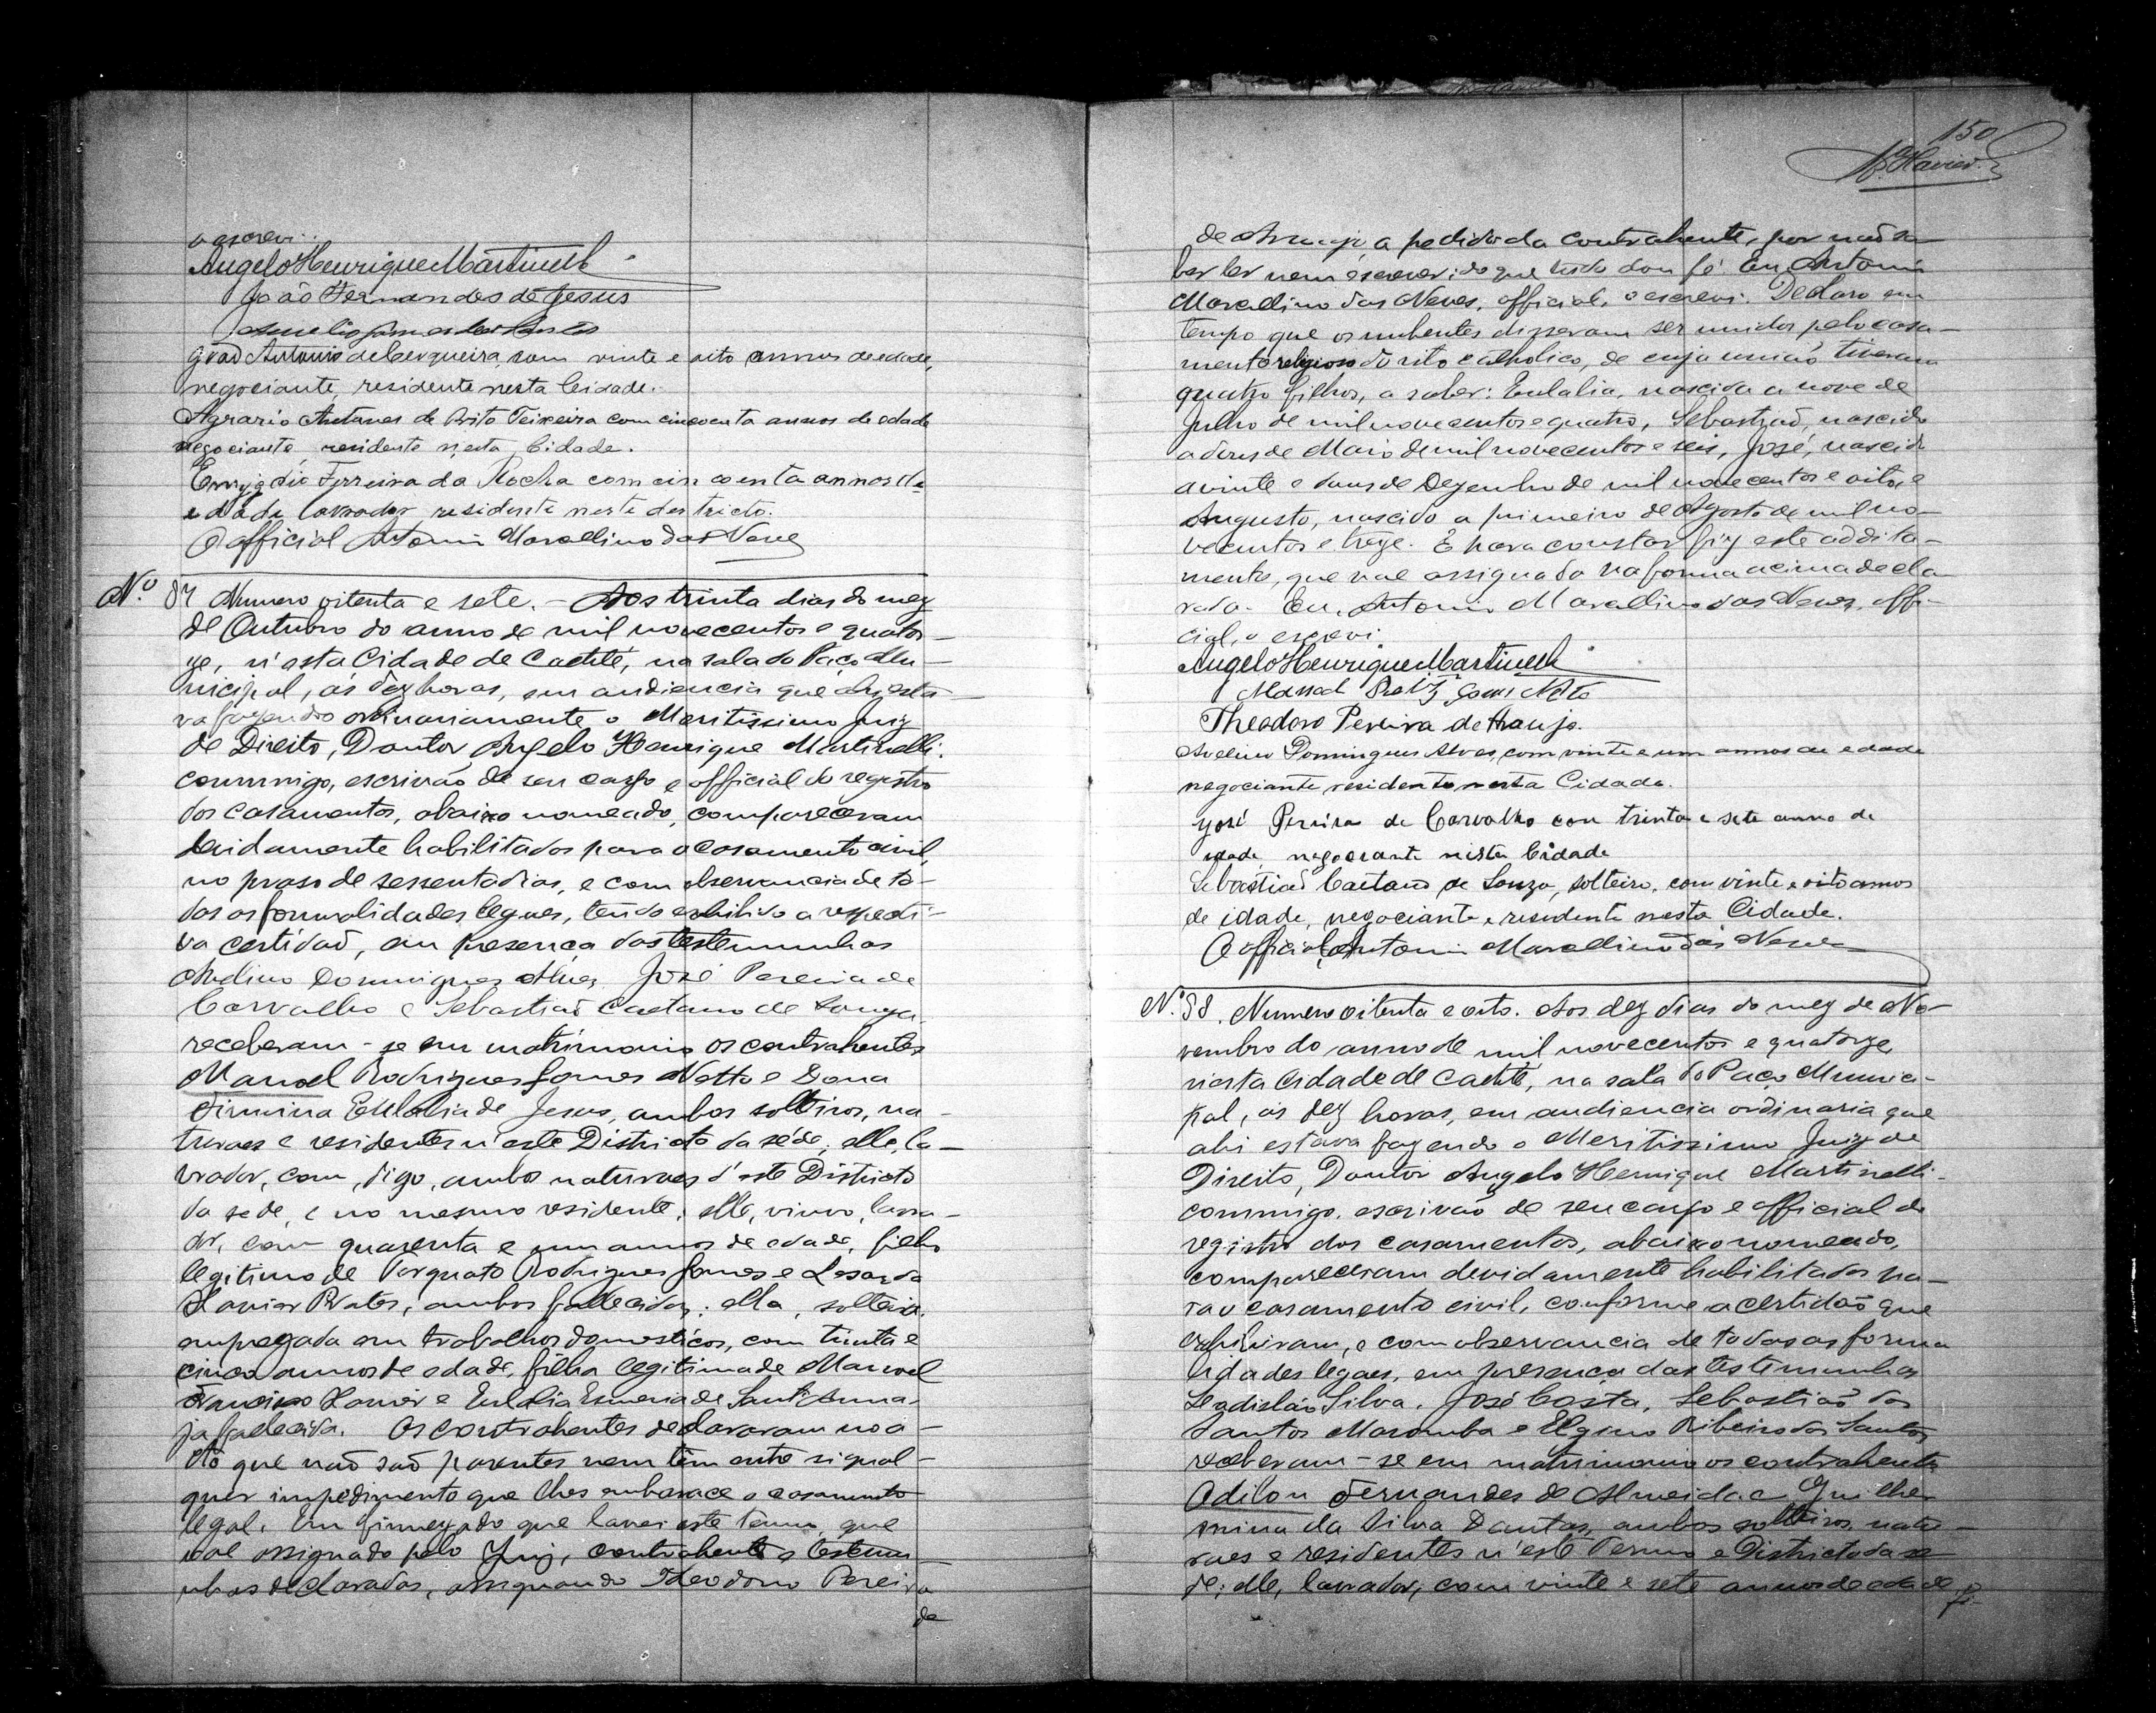 o escrevi.
Angelo Henrique Martinelli
João Fernandes de Jesus
grad Antonio de Cerqueira, com vinte e oito annos de edade,
negociante, residente nesta Cidade.
Agrario Antunes de Brito Teixeira com cincoenta annos de edade
negociante, residente nesta Cidade.
Emygdio Ferreira da Rocha com cincoenta annos de
edade lavrador residente neste destricto.
O official Antonio Marcellino das Neves
Nº 87 Numero oitenta e sete. - Aos trinta dias do mez
de Outubro do anno de mil novecentos e quator-
ze, n'esta Cidade de Caetité, na sala do Paço Mu-
nicipal, ás dez horas, em audiencia que ahi esta-
va fazendo ordinariamente o Meritissimo Juiz
de Direito, Doutor Angelo Henrique Martinelli
commigo, escrivão de seu cargo e official do registro
dos casamentos, abaixo nomeado, compareceram
devidamente habilitados para o casamento civil,
no praso de sessenta dias, e com observancia de to-
das as formalidades legaes, tendo exhibido a respecti-
va certidaõ, em presença das testemunhas
Avelino Domingues Alves, José Pereira de
Carvalho e Sebastiaõ Caetano de Souza,
receberam-se em matrimonio os contrahentes
Manoel Rodrigues Gomes Netto e Dona
Firmina Eulalia de Jesus, ambos solteiros, na-
turaes e residentes n'este Districto da séde; elle, la-
vrador, com, digo, ambos naturaes d'este Districto
da sede, e no mesmo residente; elle, viuvo, lavra-
dor, com quarenta e um annos de edade, filho
legitimo de Torquato Rodrigues Gomes e
Xavier Prates, ambos fallecidos; ella, solteira,
empregada em trabalhos domesticos, com trinta e
cinco annos de edade, filha legitima de Manoel
Francisco Xavier e Eulalia Esmeria de Sant'Anna,
ja fallecida. Os contrahentes declararam no a-
cto que naõ saõ parentes nem têm entre si qual-
quer impedimento que lhes embarace o casamento
legal. Em firmeza do que lavrei este termo, que
vae assignado pelo Juiz, contrahente e testemu-
nhas declaradas, assignando Theodoro Pereira
de
150
Xavier
de Araujo, a pedido da contrahente, por naõ sa-
ber ler nem escrever; do que tudo dou fé. Eu, Antonio
Marcellino das Neves, official, o escrevi. Declaro em
tempo que os nubentes disseram ser unidos pelo casa-
mento religioso do rito catholico, de cuja uniaõ tiveram
quatro filhos, a saber: Eulalia, nascida a nove de
Julho de mil novecentos e quatro, Sebastiaõ, nascido
a dez de Maio de mil novecentos e seis, José, nascido
a vinte e dous de Dezembro de mil novecentos e oito, e
Augusto, nascido a primeiro de Agosto de mil no-
vecentos e treze. E para constar fiz este addita-
mento, que vae assignado na forma acima decla-
rada. Eu, Antonio Marcellino das Neves, offi-
cial, o escrevi.
Angelo Henrique Martinelli
Manoel Gomes Netto
Theodoro Pereira de Araujo.
Avelino Domingues Alves, com vinte e um annos de edade
negociante residente nesta Cidade.
José Pereira de Carvalho con trinta e sete anno de
idade, negociante nista Cidade
Sebastiaõ Caetano de Souza, solteiro, com vinte e oito annos
de idade, negociante e residente nesta Cidade.
O official, Antonio Marcellino das Neves
Nº 88. Numero oitenta e oito. Aos dez dias do mez de No-
vembro do anno de mil novecentos e quatorze,
n'esta Cidade de Caetité, na sala do Paço Munici-
pal, ás dez horas, em audiencia ordinaria que
ahi estava fazendo o Meritissimo Juiz de
Direito, Doutor Angelo Henrique Martinelli,
commigo, escrivaõ de seu cargo e official do
registro dos casamentos, abaixo nomeado,
compareceram devidamente habilitados pa-
ra o casamento civil, conforme a certidão que
exhibiram, e com observancia de todas as forma
lidades legaes, em presença das testemunhas
Ladislão Silva, José Costa, Sebastiaõ dos
Santos Maromba e Elgino Ribeiro dos Santos,
receberam-se em matrimonio os contrahentes
Odilon Fernandes de Almeida e Guilher
mina da Silva Dantas, ambos solteiros, natu-
raes e residentes n'este Termo e Districto da se
de; elle, lavrador, com vinte e sete annos de edade,
fi-